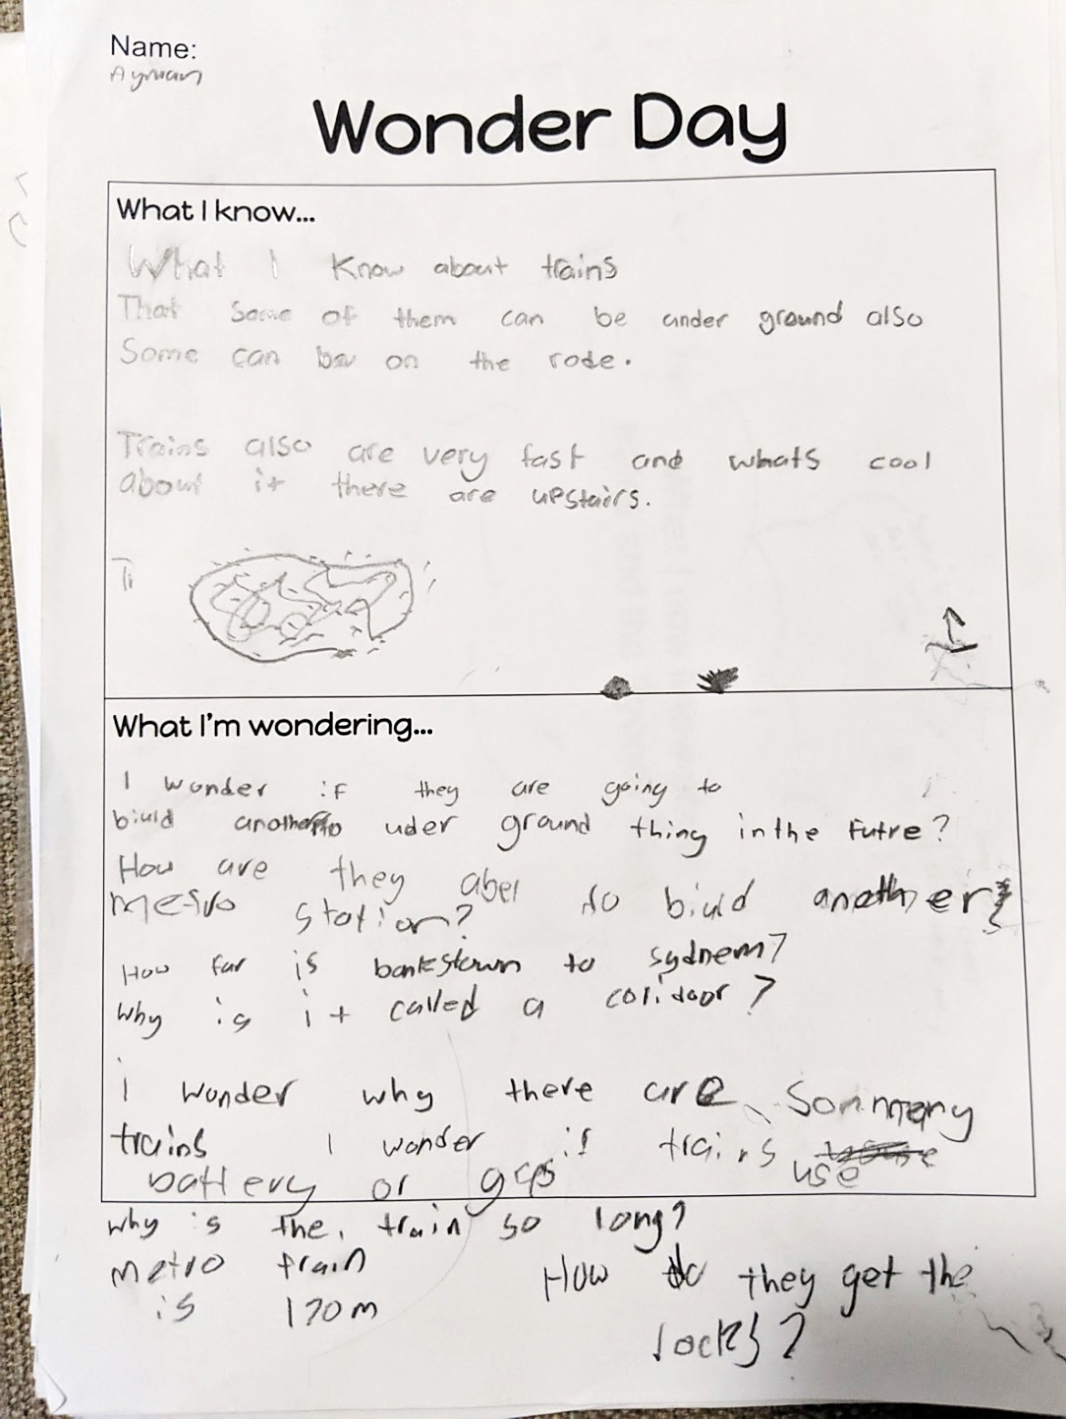 Name:
Ayman
Wonder Day
What I know...
What I know about trains
That some of them can be under ground also
Some can be on the rode.
Trains also are very fast and whats cool
about it there are upstairs.
Ti
What I'm wondering...
I wonder if they are going to
biuld another uder ground thing in the futre?
How are they abel to biuld another
metro station?
How far is bankstown to sydnem?
Why is it called a coridoor?
I wonder why there are Sommany
trains I wonder if trains use
battery or gas
why is the train so long?
metro train How do they get the
is 170m rocks?